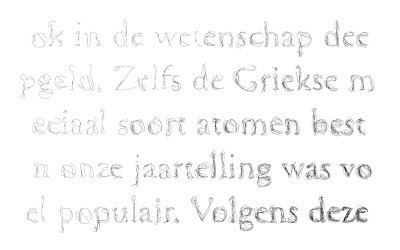 ok in de wetenschap dee
pgeld. Zelfs de Griekse m
eciaal soort atomen best
n onze jaartelling was vo
el populair. Volgens deze